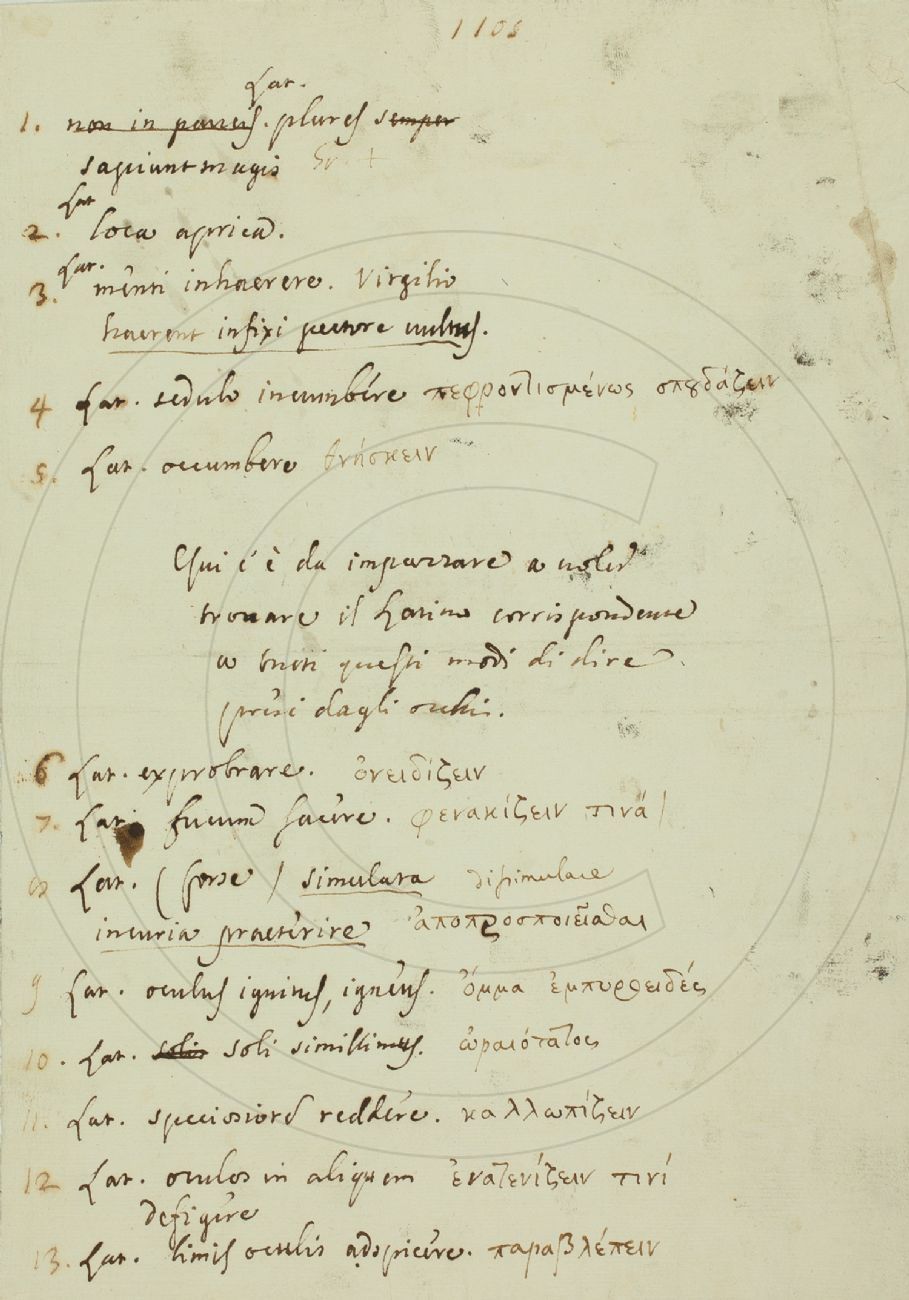 1108
Lat.
1. non in parvis. plures semper
sapiunt magis Gr. +
Lat
2. loca aprica.
Lat.
3. menti inhaerere. Virgilio
haerent infixi pectore vultus.
4 Lat. sedulo incumbere πεφροντισμένως σπȣδάζειν
5. Lat. occumbere θνήσκειν
Qui c'è da impazzare a voler
trovare il Latino corrispondente
a tutti questi modi di dire
presi dagli occhi.
6 Lat. exprobrare. ὀνειδίζειν
7. Lat. fucum facere. φενακίζειν τινά
8 Lat. (forse) simulata dissimulare
incuria praeterire ἀποπροσποιεῖσθαι
9 Lat. oculus ignitus, igneus. ὄμμα ἐμπυροειδές
10. Lat. solis soli simillimus. ὡραιότατος
11. Lat. speciosiore reddere. καλλωπίζειν
12 Lat. oculos in aliquem ἐνατενίζειν τινί
defigere
13. Lat. limis oculis adspicere. παραβλέπειν